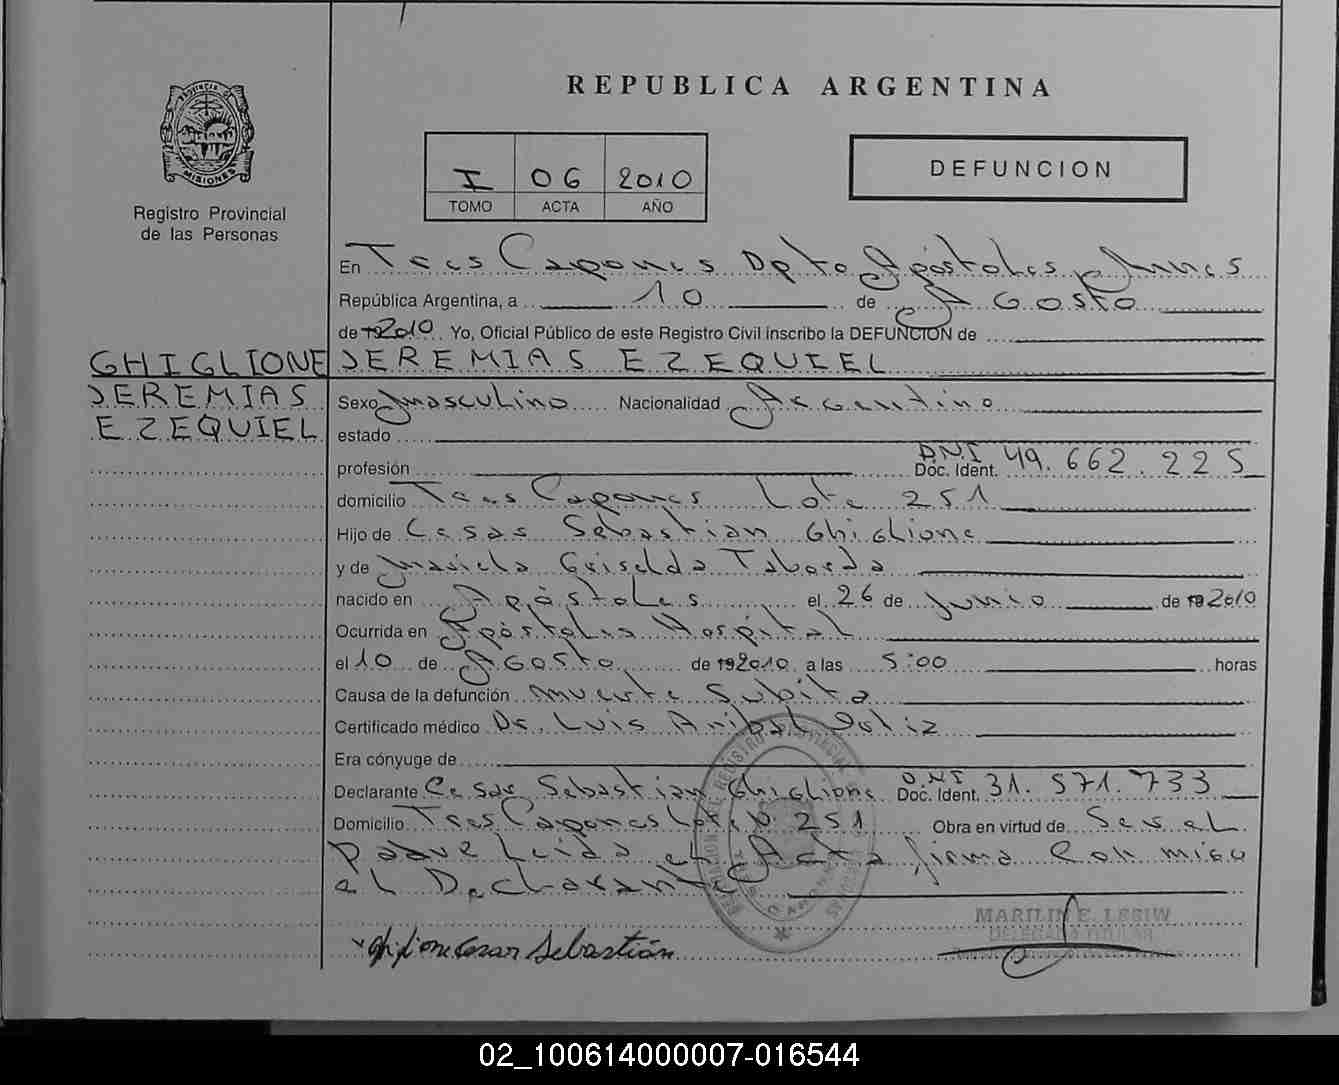 REPUBLICA ARGENTINA
PROVINCIA DE MISIONES
Registro Provincial
de las Personas
I 06 2010
TOMO ACTA AÑO
DEFUNCION
En Tres Capones Dpto Apóstoles, Mnes
República Argentina, a 10 de Agosto
de 2010 Yo, Oficial Público de este Registro Civil inscribo la DEFUNCION de
GHIGLIONE JEREMIAS EZEQUIEL
JEREMIAS
EZEQUIEL
Sexo masculino Nacionalidad Argentino
estado
profesión DNI Doc. Ident. 49.662.225
domicilio Tres Capones Lote 251
Hijo de Cesar Sebastian Ghiglione
y de Mariela Griselda Taborda
nacido en Apóstoles el 26 de Junio de 2010
Ocurrida en Apóstoles Hospital
el 10 de Agosto de 2010 a las 5:00 horas
Causa de la defunción muerte Subita
Certificado médico Dr. Luis Anibal
Era cónyuge de
Declarante Cesar Sebastian Ghiglione D.N.I Doc. Ident. 31.571.733
Domicilio Tres Capones Lote N 251 Obra en virtud de Ser el
padre Leida el Acta firma Con migo
el Declarante
MARILIN E. LESIW
DELEGADA TITULAR
Ghiglione Cesar Sebastián
02_100614000007-016544